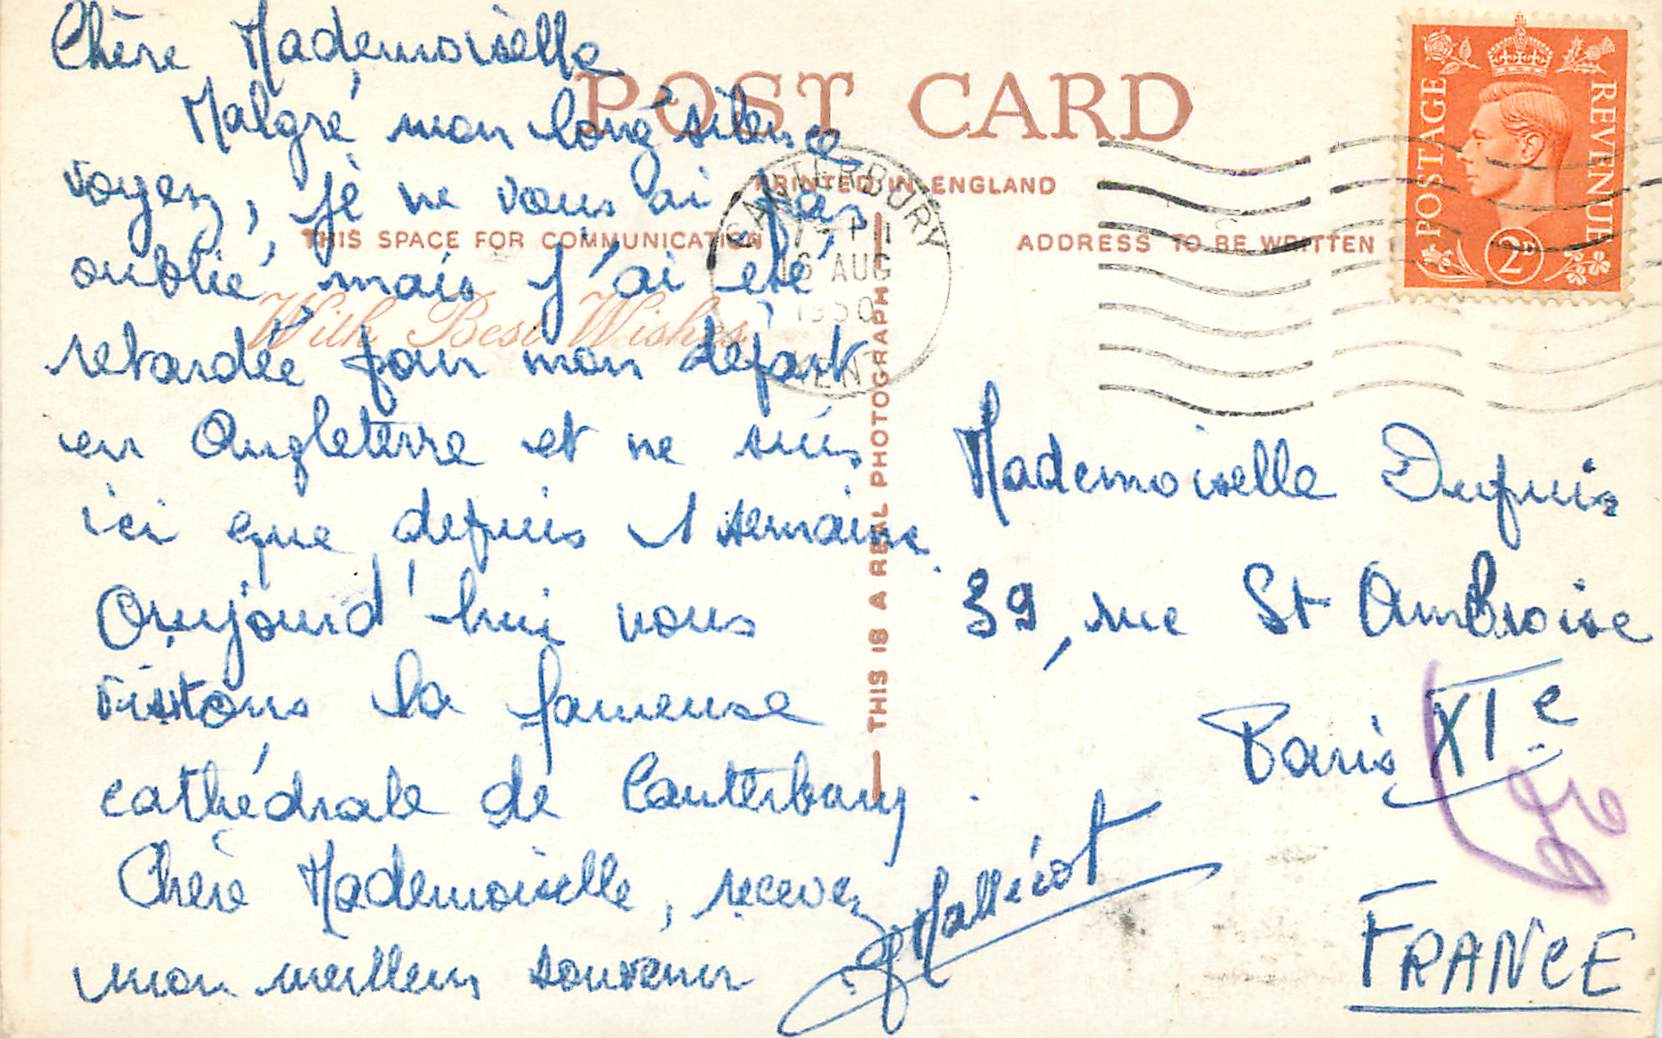 Chère Mademoiselle
Malgré mon long silence
voyez, je ne vous ai pas
oublié, mais j'ai été
retardée pour mon départ
en Angleterre et ne suis
ici que depuis 1 semaine.
Aujourd'hui nous
visitons la fameuse
cathédrale de Canterbury.
Chère Mademoiselle, recevez
mon meilleur souvenir
POST CARD
PRINTED IN ENGLAND
THIS SPACE FOR COMMUNICATION
ADDRESS TO BE WRITTEN
With Best Wishes
THIS IS A REAL PHOTOGRAPH
CANTERBURY
16 AUG
1950
KENT
POSTAGE
REVENUE
2D
Mademoiselle Dupuis
39, rue St Ambroise
Paris XIe
FRANCE